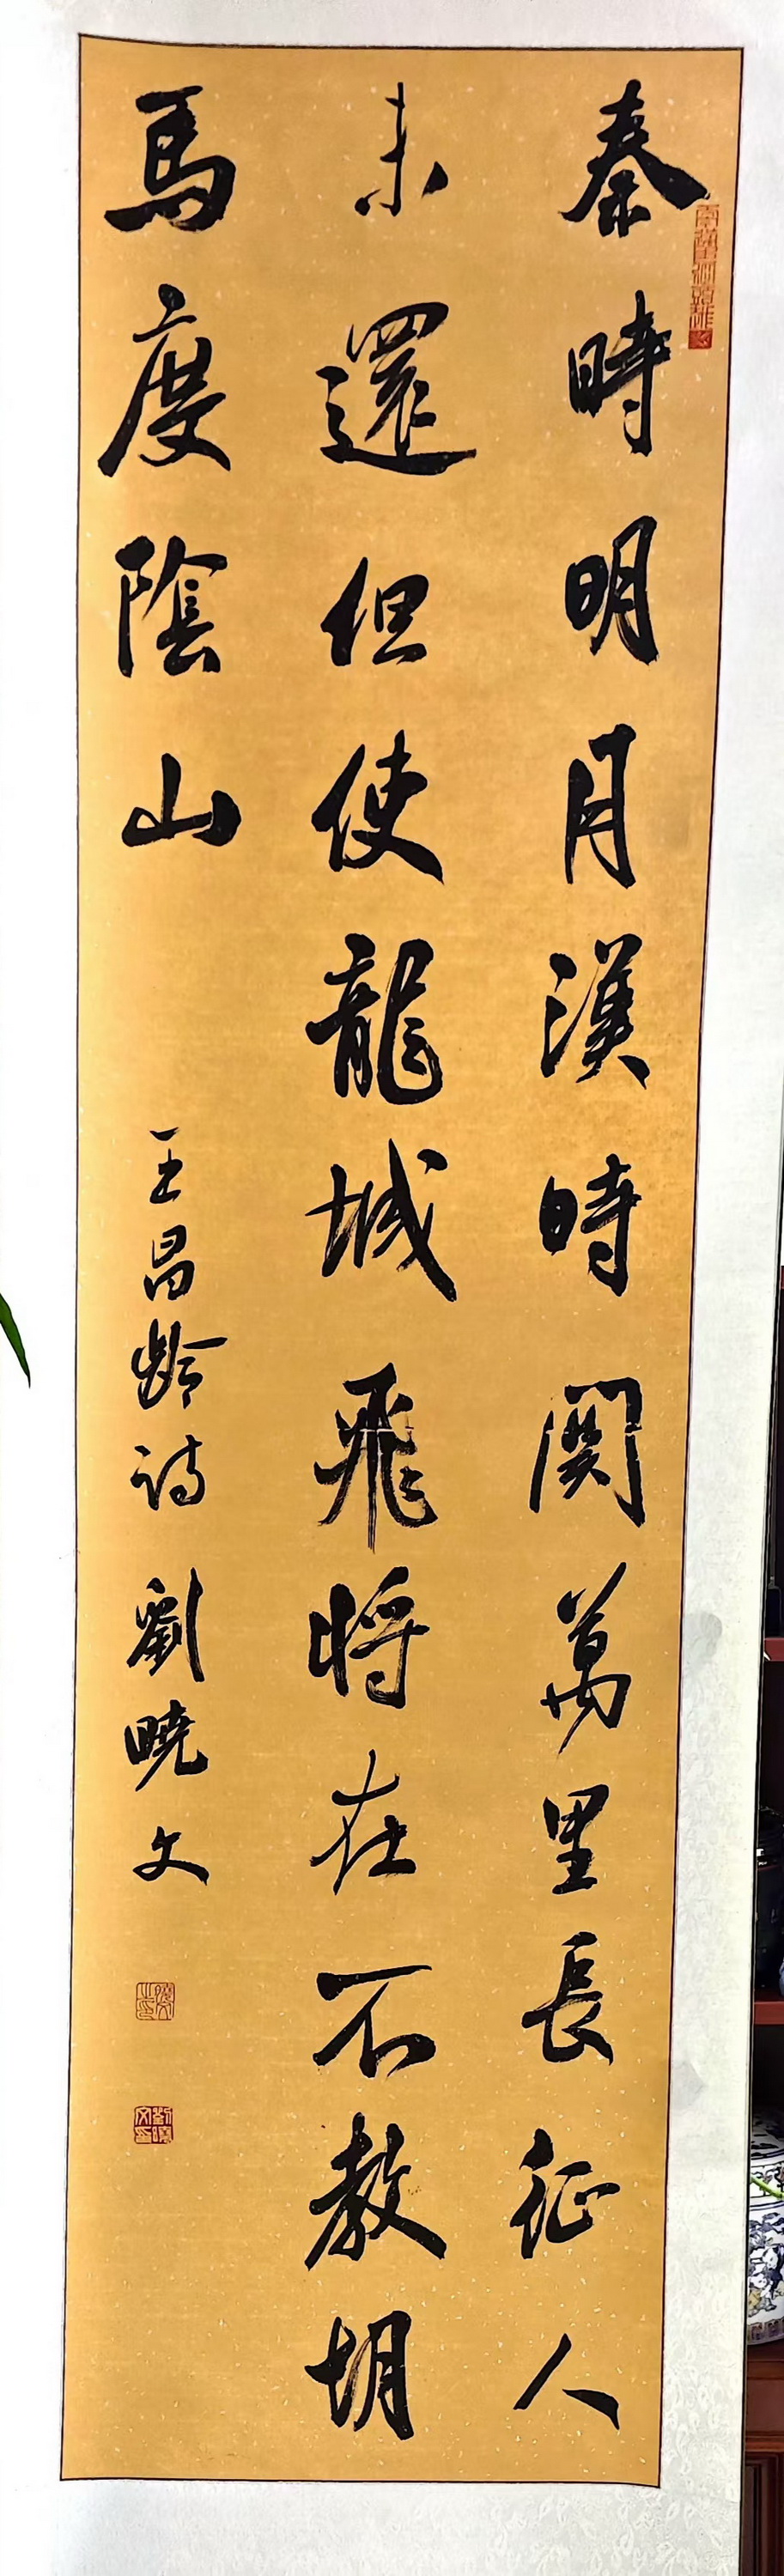 秦時明月漢時関萬里長征人
未還但使龍城飛将在不教胡
馬度陰山
王昌齡诗 劉曉文